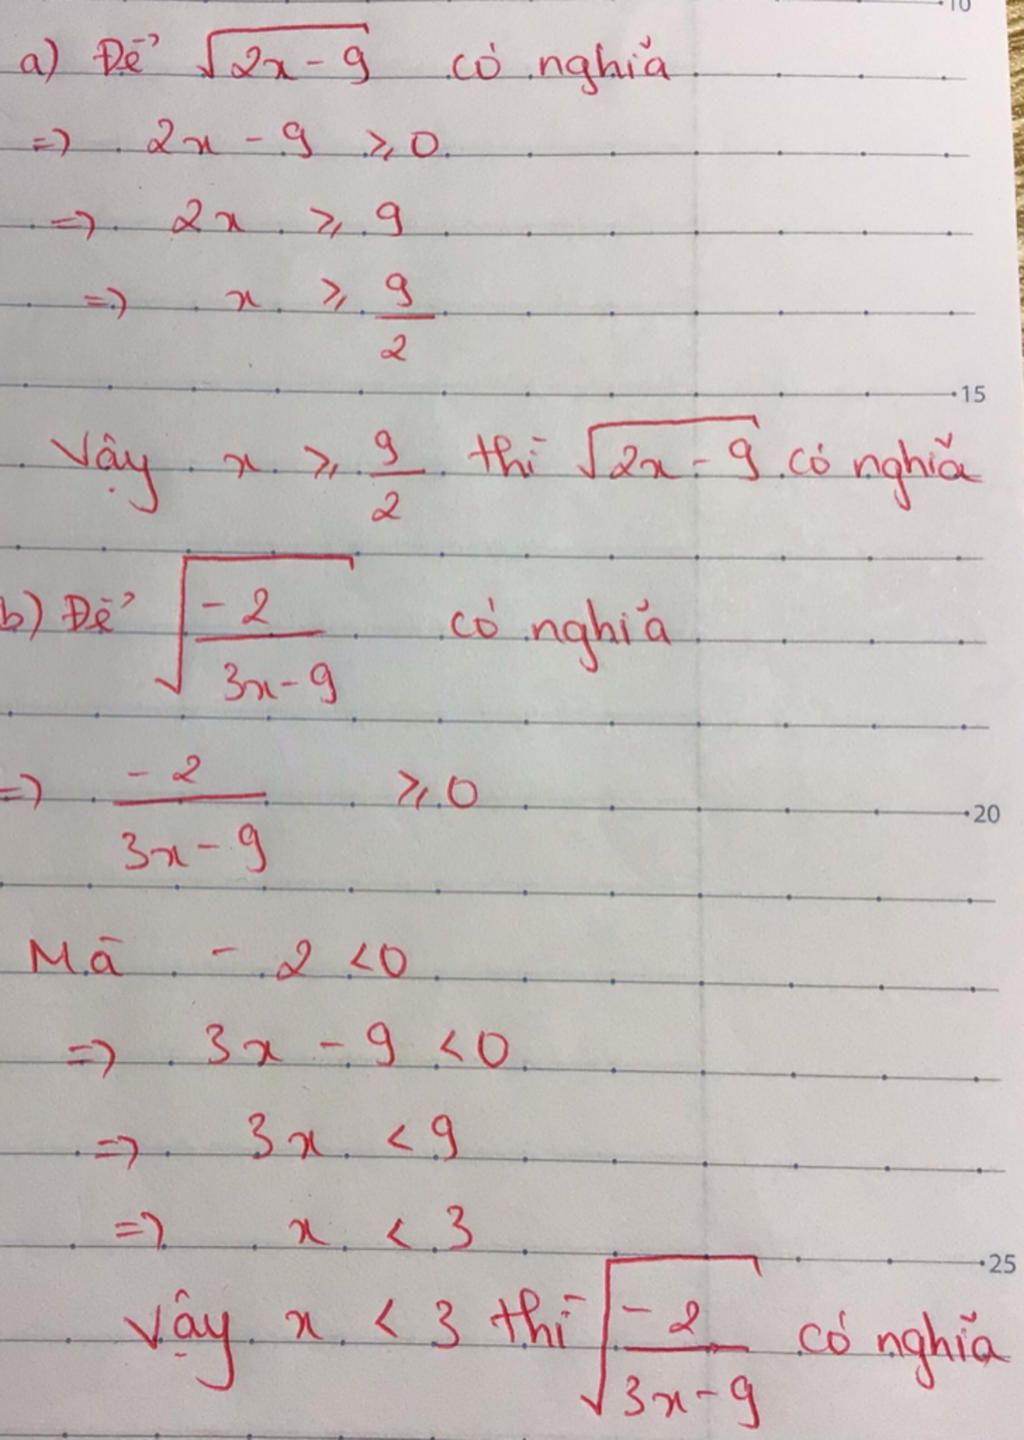 10
a) Để √(2x - 9) có nghĩa
=> 2x - 9 ⩾ 0
=> 2x ⩾ 9
=> x ⩾ 9/2
15
Vậy x ⩾ 9/2 thì √(2x - 9) có nghĩa
b) Để √(-2/(3x - 9)) có nghĩa
=> -2/(3x - 9) ⩾ 0
20
Mà - 2 < 0
=> 3x - 9 < 0
=> 3x < 9
=> x < 3
25
Vậy x < 3 thì √(-2/(3x - 9)) có nghĩa